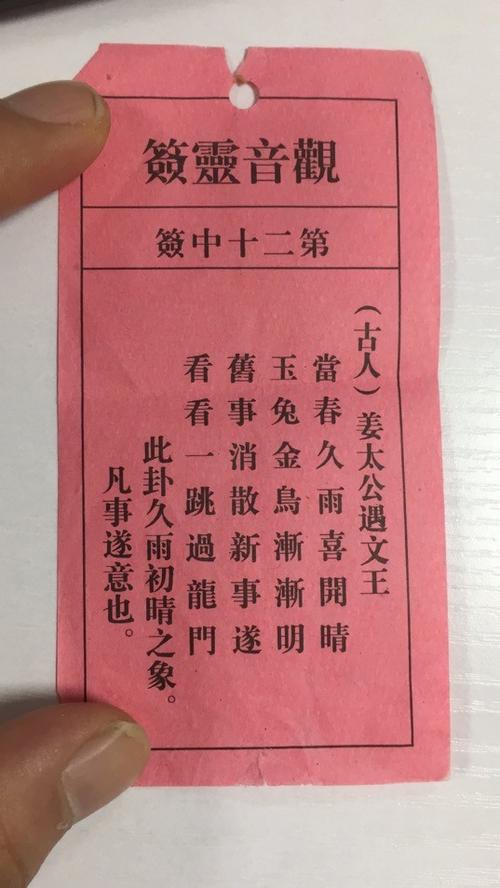 觀音靈簽
第二十中簽
（古人）姜太公遇文王
當春久雨喜開晴
玉兔金鳥漸漸明
舊事消散新事遂
看看一跳過龍門
此卦久雨初晴之象。
凡事遂意也。